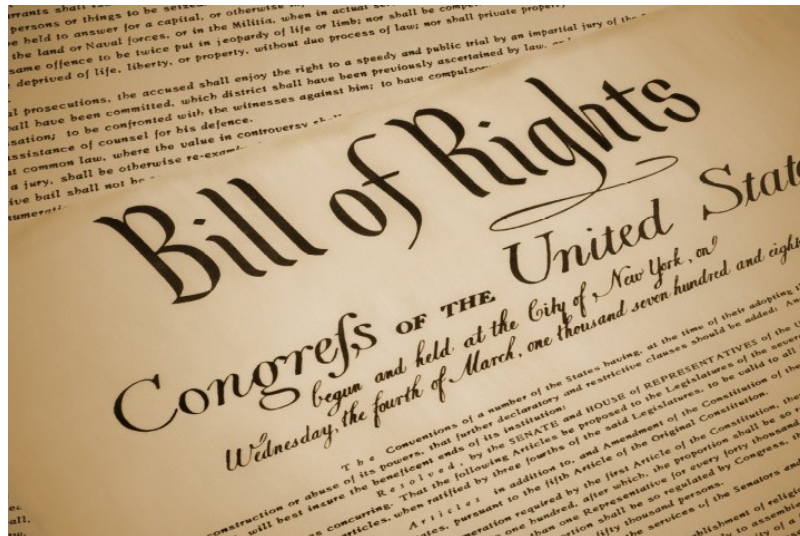 rrants shall
persons or things to be seized.
be held to answer for a capital, or otherwise
the land or Naval forces, or in the Militia, when in actual
same offence to be twice put in jeopardy of life or limb; nor shall be
deprived of life, liberty, or property, without due process of law; nor shall private
l prosecutions, the accused shall enjoy the right to a speedy and public trial by an impartial jury of the
all have been committed, which district shall have been previously ascertained by law,
sation; to be confronted with the witnesses against him; to have compulsor
ssistance of counsel for his defence.
t common law, where the value in controversy
a jury, shall be otherwise re-exam
ive bail shall not be
numeratio
Bill of Rights
Congreſs OF THE United State
begun and held at the City of New York, on
Wednesday, the fourth of March, one thousand seven hundred and eight
The Conventions of a number of the States having, at the time of their adopting
onstruction or abuse of its powers, that further declaratory and restrictive clauses should be added:
will best insure the beneficent ends of its institution;
Resolved, by the SENATE and HOUSE of REPRESENTATIVES of the U
concurring. That the following Articles be proposed to the Legislatures of the several
rticles, when ratified by three fourths of the said Legislatures, to be valid to all
Articles in addition to, and Amendment of the Constitution of the
ates, pursuant to the fifth Article of the Original Constitution.
meration required by the first Article of the Constitution, the
one hundred, after which, the proportion shall be so
than one Representative for every forty thousand
ortion shall be so regulated by Congress,
fifty thousand persons.
the services of the Senators and
blishment of religi
to assemb
all.